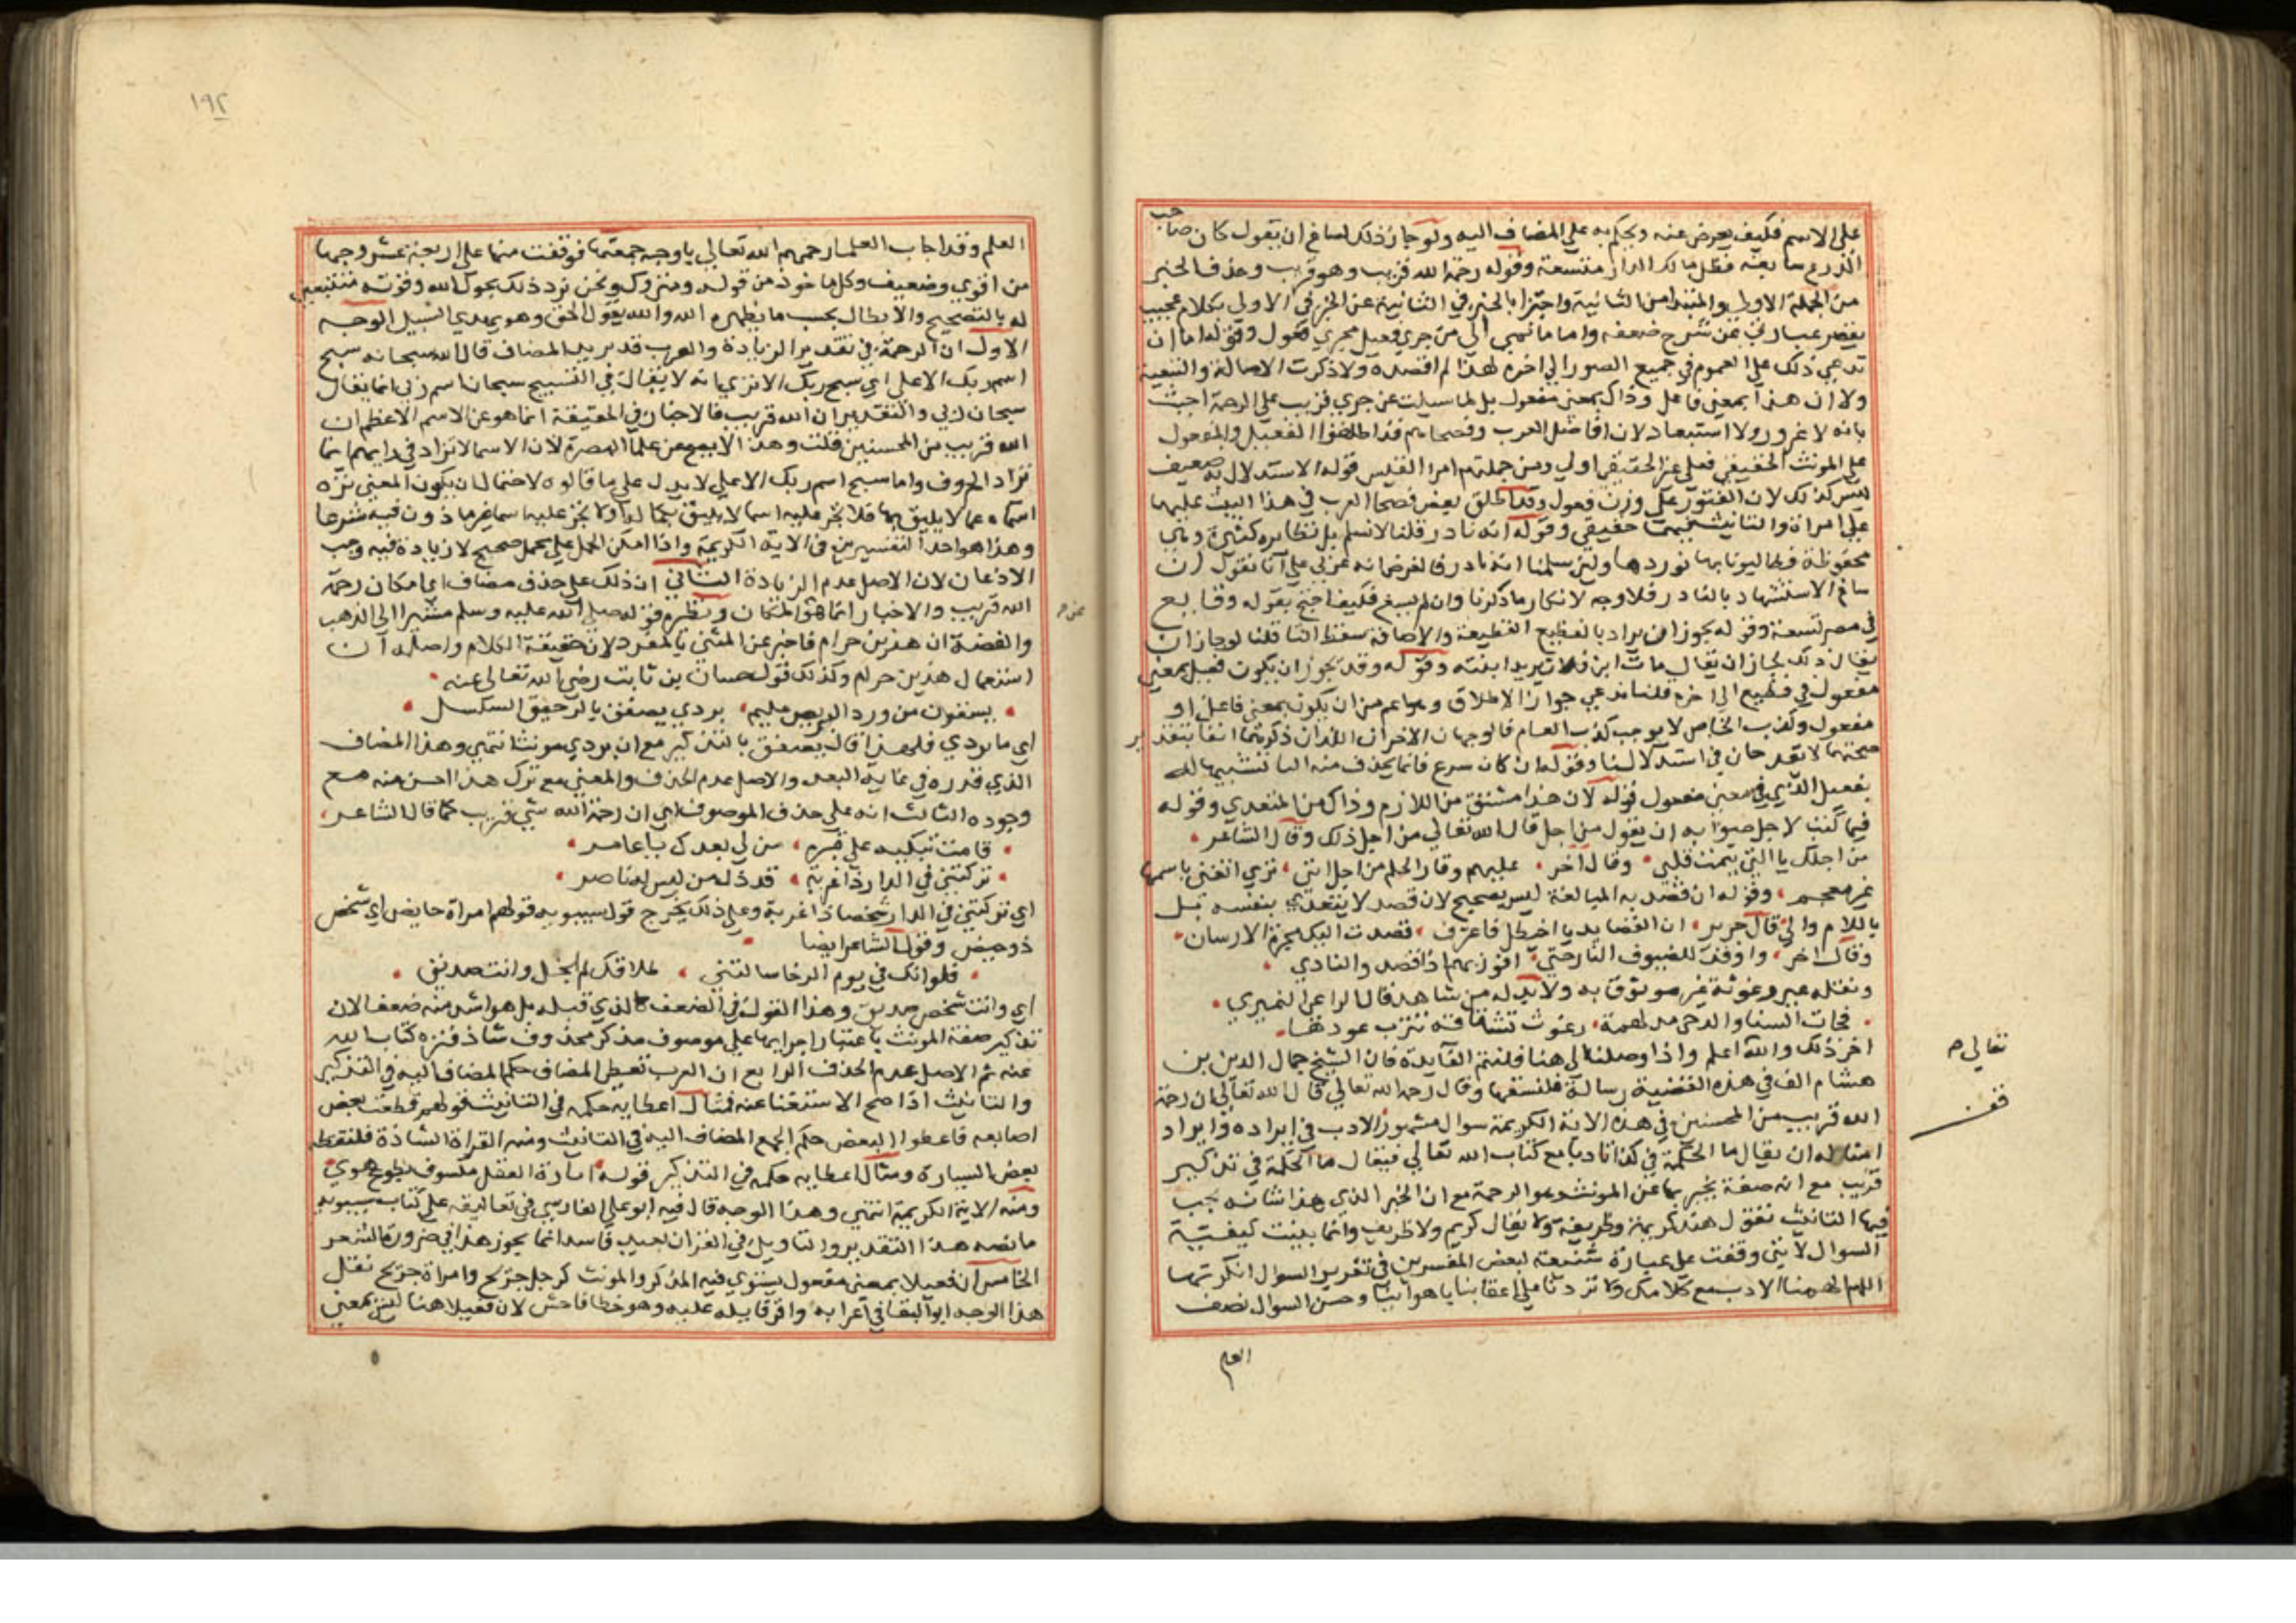 على الاسم فكيف يعرض عنه ويحكم به على المضاف اليه ولو جاز ذلك لساغ ان يقول كان صاحب
الدرع سابغة فظل مالك الدار متسعة وقوله رحمة الله قريب وهو قريب وحذف الخبر
من الجملة الاولى والمبتدا من الثانية واجتزا بالخبر في الثانية عن الخبر في الاولى كلام عجيب
يقصر عبارتي عن شرح ضعفه واما ما نمى الي من جري فعيل مجري فعول وقوله اما ان
تدعي ذلك على العموم في جميع الصور الى اخره لهذا لم اقصده ولا ذكرت الاصالة والتبعية
ولا ان هذا بمعنى فاعل وذاك بمعنى مفعول بل لما سيلت عن جري قريب على الرحمة اجبت
بانه لا غرور ولا استبعاد لان افاضل العرب وفصحاهم قد اطلقوا الفعيل والفعول
على المونث الحقيقي فعلى غير الحقيقي اولى ومن جملتهم امرا القيس قوله الاستدلال به ضعيف
ليس كذلك لان الفتور على وزن فعول وقد اطلق بعض فصحا العرب في هذا البيت عليها
على امراة والتانيث حقيقي وقوله انه نادر قلنا لا نسلم بل نظايره كثيرة وهي
محفوظة فطالبونا بها نوردها ولين سلمنا انه نادر فالفرض انه عربي على انا نقول ان
ساغ الاستشهاد بالنادر فلا وجه لانكار ما ذكرنا وان لم يسغ فكيف احتج بقوله وقايع
في مصر تسعة وقوله يجوز ان يراد بالفظيع الفظيعة والاضافة سقط التا قلنا لو جاز ان
يقال ذلك لجاز ان يقال مات ابن فلان يريد ابنته وقوله وقد يجوز ان يكون فعيل بمعنى
مفعول في فظيع الى اخره قلنا ندعي جواز الاطلاق وهو اعم من ان يكون بمعنى فاعل او
مفعول وكذب الخاص لا يوجب كذب العام فالوجهان الاخران اللذان ذكرتهما انفا بتقدير
صحتهما لا يقدحان في استدلالنا وقوله ان كان سرع فانما يحذف منه التا تشبيها له
بفعيل الذي في معنى مفعول قوله لان هذا مشتق من اللازم وذاك من المتعدي وقوله
فيما كنت لاجل صوابه ان يقول من اجل قال الله تعالى من اجل ذلك وقال الشاعر
من اجلك يا التي تيمت قلبي وقال اخر عليهم وقار الحلم من اجل انني ترى اتغنى باسمها
غير معجم وقوله ان قصد به المبالغة ليس بصحيح لان قصد لا يتعدي بنفسه قبل
باللام والى قال جرير ان القصايد يا اخيطل فاعترف قصدت اليك مجرة الارسان
وقال اخر واوقد للضيوف النار حتى افوز بهم اذا قصدوا لناري
ونقله عبر وغوثة غير موثوق به ولا بد له من شاهد قال الراعي النميري
اخر ذلك والله اعلم واذا وصلنا الى هنا فلنتم الفايدة فان الشيخ جمال الدين بن
هشام الف في هذه القضية رسالة فلنسقها وقال رحمه الله تعالى قال الله تعالى ان رحمة
الله قريب من المحسنين في هذه الاية الكريمة سوال مشهور الادب في ايراده وايراد
امثاله ان يقال ما الحكمة في كذا تادبا مع كتاب الله تعالى فيقال ما الحكمة في تذكير
قريب مع انه صفة يخبر بها عن المونث وهو الرحمة مع ان الخبر الذي هذا شانه يجب
فيها التانيث تقول هند كريمة وظريفة ولا يقال كريم ولا ظريف وانما بينت كيفية
السوال لانني وقفت على عبارة شنيعة لبعض المفسرين في تقرير السوال انكرتها
اللهم الهمنا الادب مع كلامك ولا تردنا على اعقابنا باهوائنا وحسن السوال نصف
العلم
تعالى م
قف
١٩٢
العلم وقد اجاب العلما رحمهم الله تعالى باوجه جمعتها فوقفت منها على اربعة عشر وجها
من اقوي وضعيف وكل ماخوذ من قوله ومتروك ونحن نرد ذلك بحول الله وقوته متتبعين
له بالتصحيح والابطال بحسب ما يظهره الله والله يقول الحق وهو يهدي السبيل الوجه
الاول ان الرحمة في تقدير الزيادة والعرب قد يزيد المضاف قال الله سبحانه سبح
اسم ربك الاعلى اي سبح ربك الا تري انه لا يقال في التسبيح سبحان اسم ربي انما يقال
سبحان ربي والتقدير ان الله قريب فالاخبار في الحقيقة انما هو عن الاسم الاعظم ان
الله قريب من المحسنين قلت وهذا لا يصح عن علما البصرة لان الاسما لا تزاد في رايهم انما
تزاد الحروف واما سبح اسم ربك الاعلى لا يدل على ما قالوه لاحتمال ان يكون المعنى نزه
اسماه عما لا يليق بها فلا تجر عليه اسما لا يليق بكماله ولا تجر عليه اسما غير ماذون فيه شرعا
وهذا هو احد التفسيرين في الاية الكريمة واذا امكن الحمل على محمل صحيح لا زيادة فيه وجب
الاذعان لان الاصل عدم الزيادة الثاني ان ذلك على حذف مضاف اي امكان رحمة
الله قريب والاخبار انما هو المكان ونظيره قوله صلى الله عليه وسلم مشيرا الى الذهب
والفضة ان هذين حرام فاخبر عن المثنى بالمفرد لان حقيقة الكلام واصله ان
استعمال هذين حرام وكذلك قول حسان بن ثابت رضي الله تعالى عنه
يسقون من ورد البريص عليهم بردي يصفق بالرحيق السلسل
اي ما بردي فلهذا قال يصفق بالتذكير مع ان بردي مونث انتهي وهذا المضاف
الذي قدره في غاية البعد والاصل عدم الحذف والمعنى مع ترك هذا احسن منه مع
وجوده الثالث انه على حذف الموصوف اي ان رحمة الله شي قريب كما قال الشاعر
قامت تبكيه على قبره من لي بعدك يا عامر
تركتني في الدار ذا غربة قد ذل من ليس له ناصر
اي تركتني في الدار شخصا ذا غربة وعلى ذلك يخرج قول سيبويه قولهم امراة حايض اي شخص
ذو حيض وقول الشاعر ايضا
فلو انك في يوم الرخا سالتني طلاقك لم ابخل وانت صديق
اي وانت شخص صديق وهذا القول في الضعف كالذي قبله بل هو اشد منه ضعفا لان
تذكير صفة المونث باعتبار اجرايها على موصوف مذكر محذوف شاذ فنزه كتاب الله
عنه ثم الاصل عدم الحذف الرابع ان العرب تعطى المضاف حكم المضاف اليه في التذكير
والتانيث اذا صح الاستغنا عنه فمثال اعطايه حكمه في التانيث قولهم قطعت بعض
اصابعه فاعطوا البعض حكم الجمع المضاف اليه في التانيث ومنه القراة الشاذة فلتقطه
بعض السيارة ومثال اعطايه حكمه في التذكير قوله انارة العقل مكسوف بطوع هوي
ومنه الاية الكريمة انتهي وهذا الوجه قال فيه ابو علي الفارسي في تعاليقه على كتاب سيبويه
ما نصه هذا التقدير والتاويل في القران بعيد فاسد انما يجوز هذا في ضرورة الشعر
الخامس ان فعيلا بمعنى مفعول يستوي فيه المذكر والمونث كرجل جريح وامراة جريح نقل
هذا الوجه ابو البقا في اعرابه واقر قايله عليه وهو خطا فاحش لان فعيلا هنا ليس بمعنى